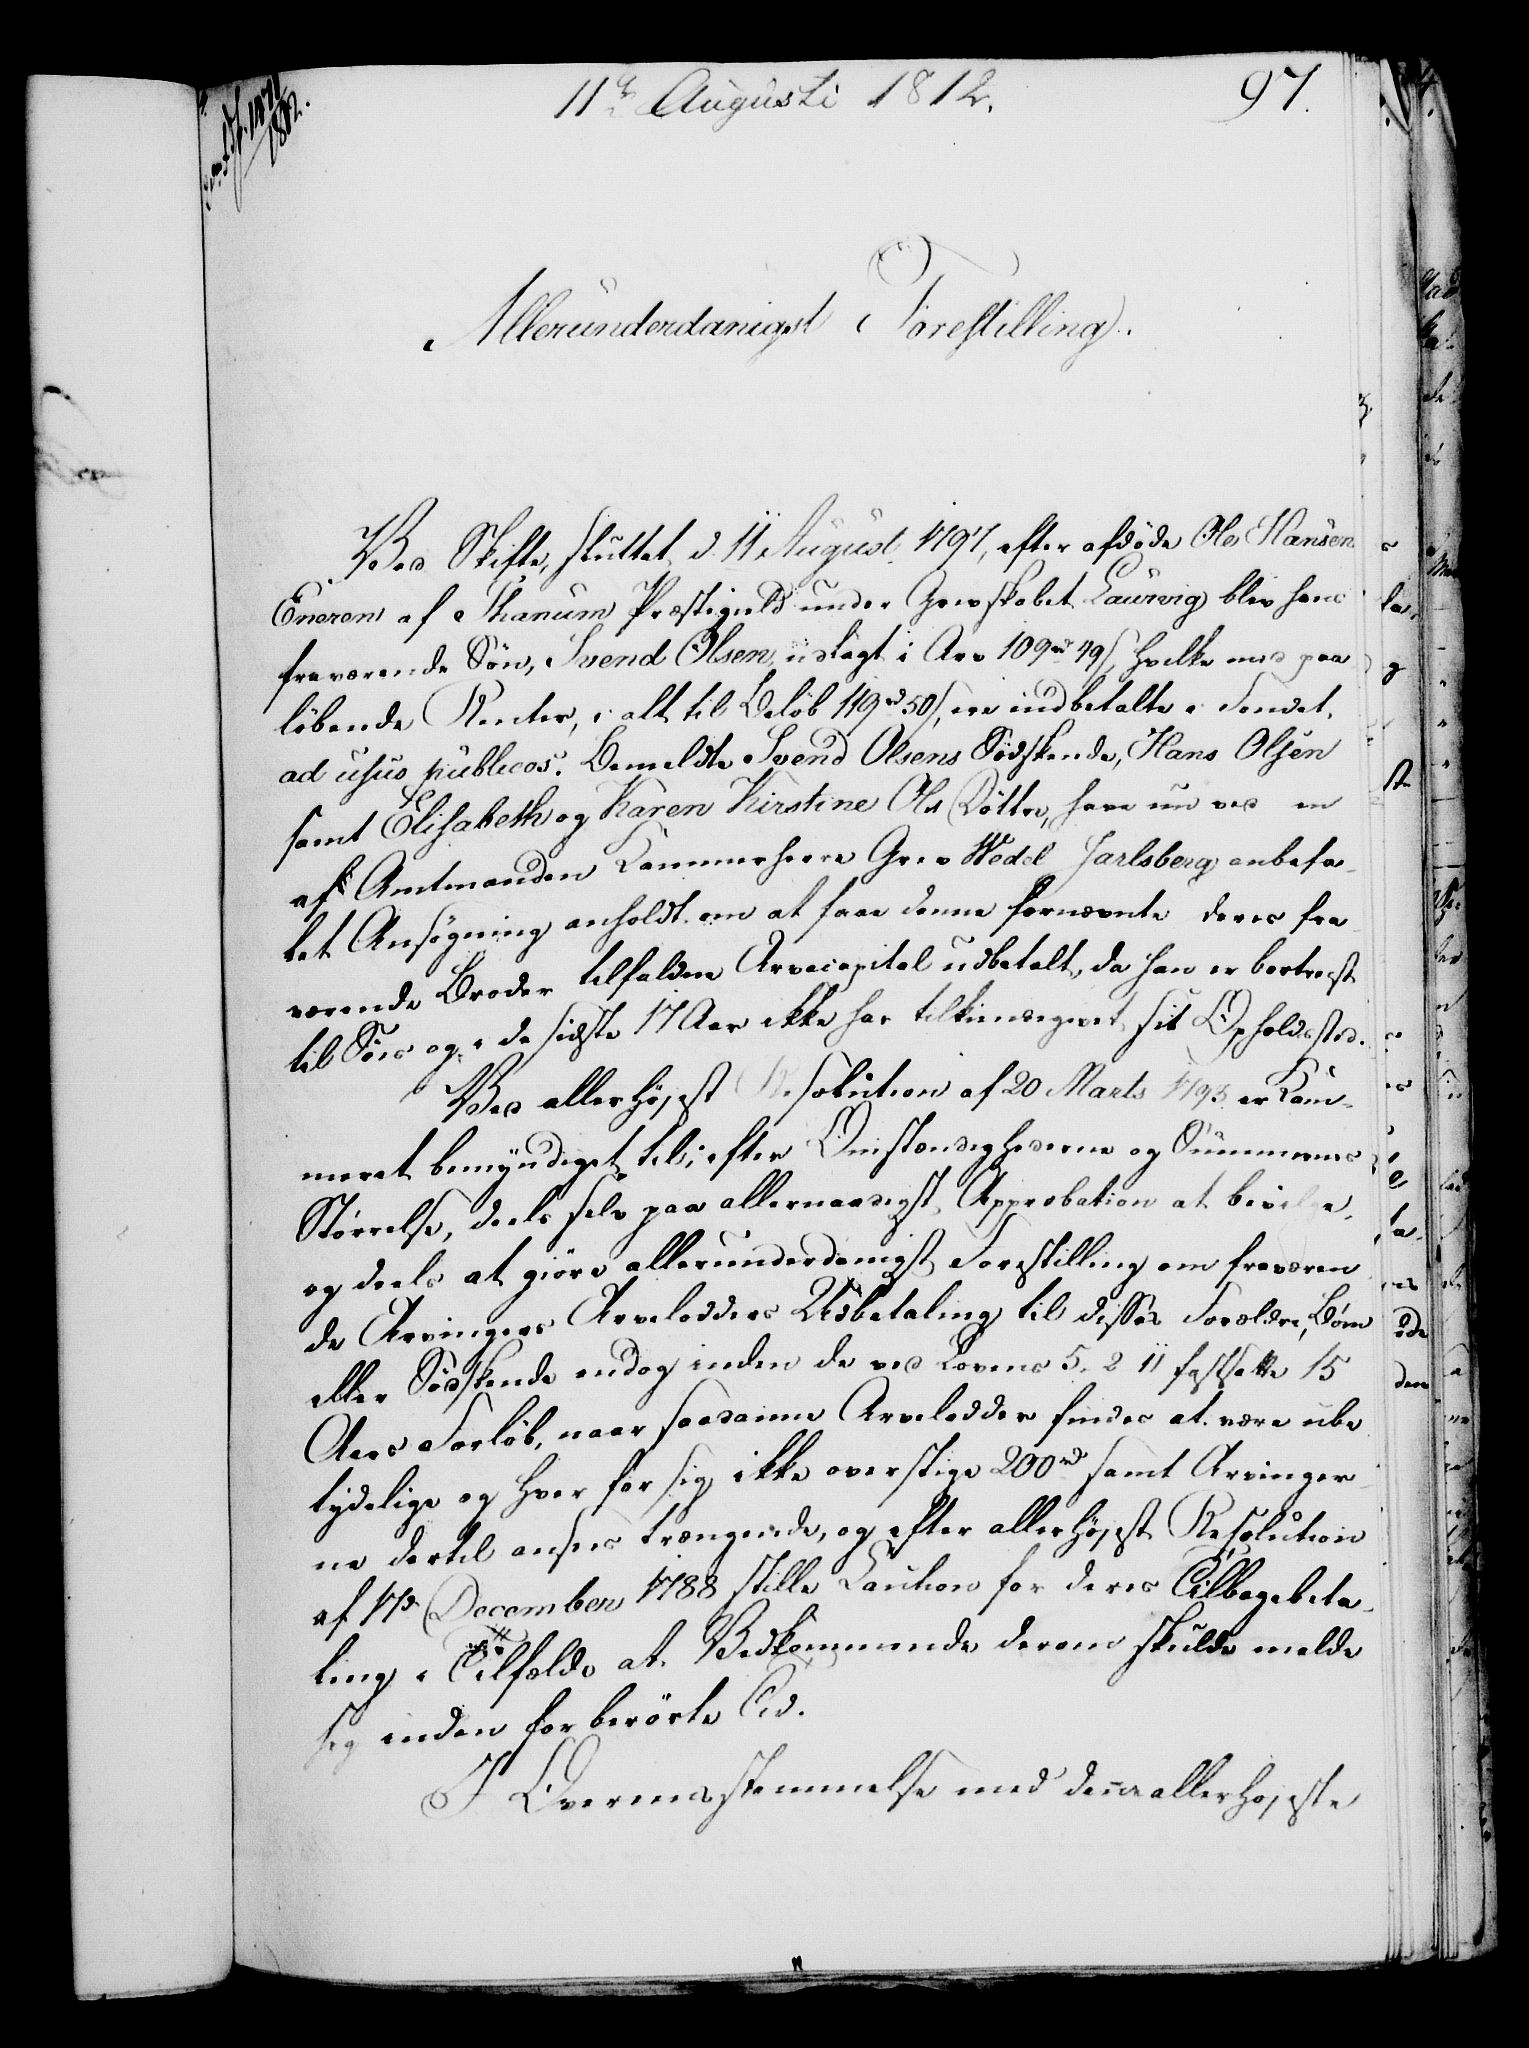 11te Augusti 1812.
97.
Allerunderdanigst Forestilling.
Ved Skifte, sluttet d. 11 August 1797, efter afdöde Ole Hansen
Eneren af Thanum Præstegield under Grevskabet Laurvig blev hans
fraværende Sön, Svend Olsen, udlagt i Arv 109 rd 49 s, hvilke med paa
löbende Renter, i alt til Belöb 119 rd 50 s, ere indbetalte i Fondet
ad usus publicos. Bemeldte Svend Olsens Södskende, Hans Olsen
samt Elisabeth og Karen Kirstine Ols Döttre, have nu ved en
af Amtmanden Kammerherre Grev Wedel Jarlsberg anbefa-
let Ansögning anholdt om at faae denne fornævnte deres fra
værende Broder tilfaldne Arvecapital udbetalt, da han er bortreist
til Söes og i de sidste 17 Aar ikke har tilkiendegivet sit Opholdssted.
Ved allerhöjest Resolution af 20 Marts 1793 er Kam-
meret bemyndiget til, efter Omstændighederne og Summernes
Störrelse, deels selv paa allernaadigst Approbation at bevilge,
og deels at giöre allerunderdanigst Forestilling om fraværen
de Arvingers Arvelodders Udbetaling til disses Forældre, Börn
eller Södskende endog inden de ved Lovens 5. 2 11 fastsatte 15
Aars Forlöb, naar saadanne Arvelodder findes at være ube
tydelige og hver for sig ikke overstige 200 rd samt Arvinger
ne dertil ansees trængende, og efter allerhöjest Resolution
af 17de December 1788 stille Caution for deres Tilbagebeta-
ling i Tilfælde at Vedkommende derom skulde melde
sig inden forberörte Tid.
I Overensstemmelse med denne allerhöjeste